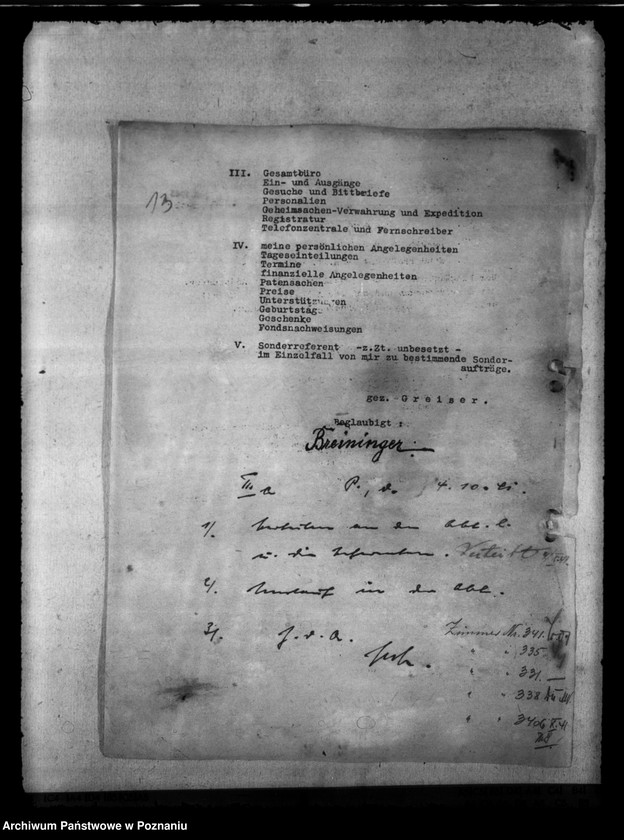 13
III. Gesamtbüro
Ein- und Ausgänge
Gesuche und Bittbriefe
Personalien
Geheimsachen-Verwahrung und Expedition
Registratur
Telefonzentrale und Fernschreiber
IV. meine persönlichen Angelegenheiten
Tageseinteilungen
Termine
finanzielle Angelegenheiten
Patensachen
Preise
Unterstützungen
Geburtstag
Geschenke
Fondsnachweisungen
V. Sonderreferent -z.Zt. unbesetzt -
im Einzelfall von mir zu bestimmende Sonder-
aufträge.
gez. Greiser.
Beglaubigt :
Breininger
III a P., d. 4.10.41.
1/. an den Abt. L.
u. die
2/. Umlauf in der Abt.
3/. z.d.A.
Zimmer Nr. 341
" " 335
" " 331
" " 338
" " 340a
Archiwum Państwowe w Poznaniu